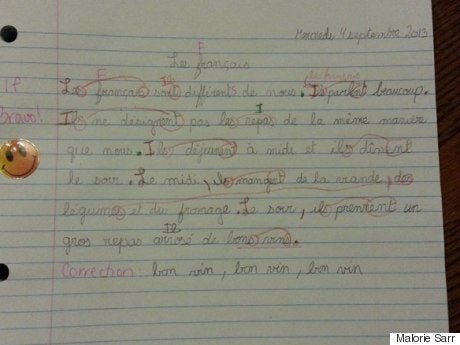 Mercredi 4 septembre 2013
F
Les français
F Il les français
Les français sont différents de nous. Ils parlent beaucoup.
If
Bravo!
I
Ils ne désignent pas les repas de la même manière
que nous. Ils déjeunent à midi et ils dînent
le soir. Le midi, ils mangent de la viande, des
légumes et du fromage. Le soir, ils prennent un
Il
gros repas arrosé de bons vins.
Correction: bon vin, bon vin, bon vin
Malorie Sarr